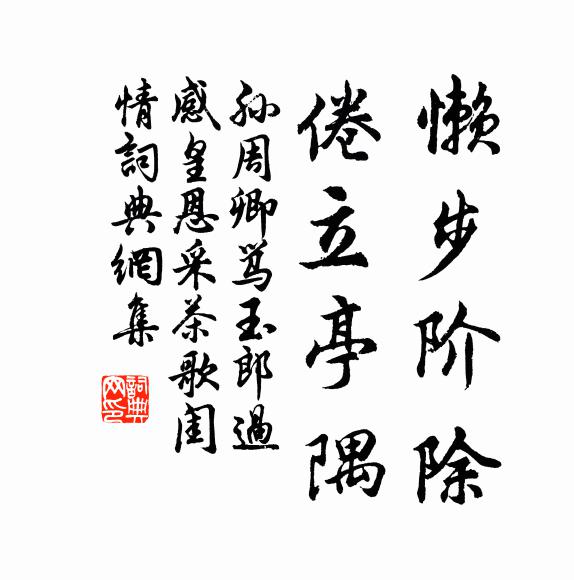 懒步阶除
倦立亭隅
孙周卿骂玉郎過
感皇恩采茶歌闺
情詞典網集
詞典网印